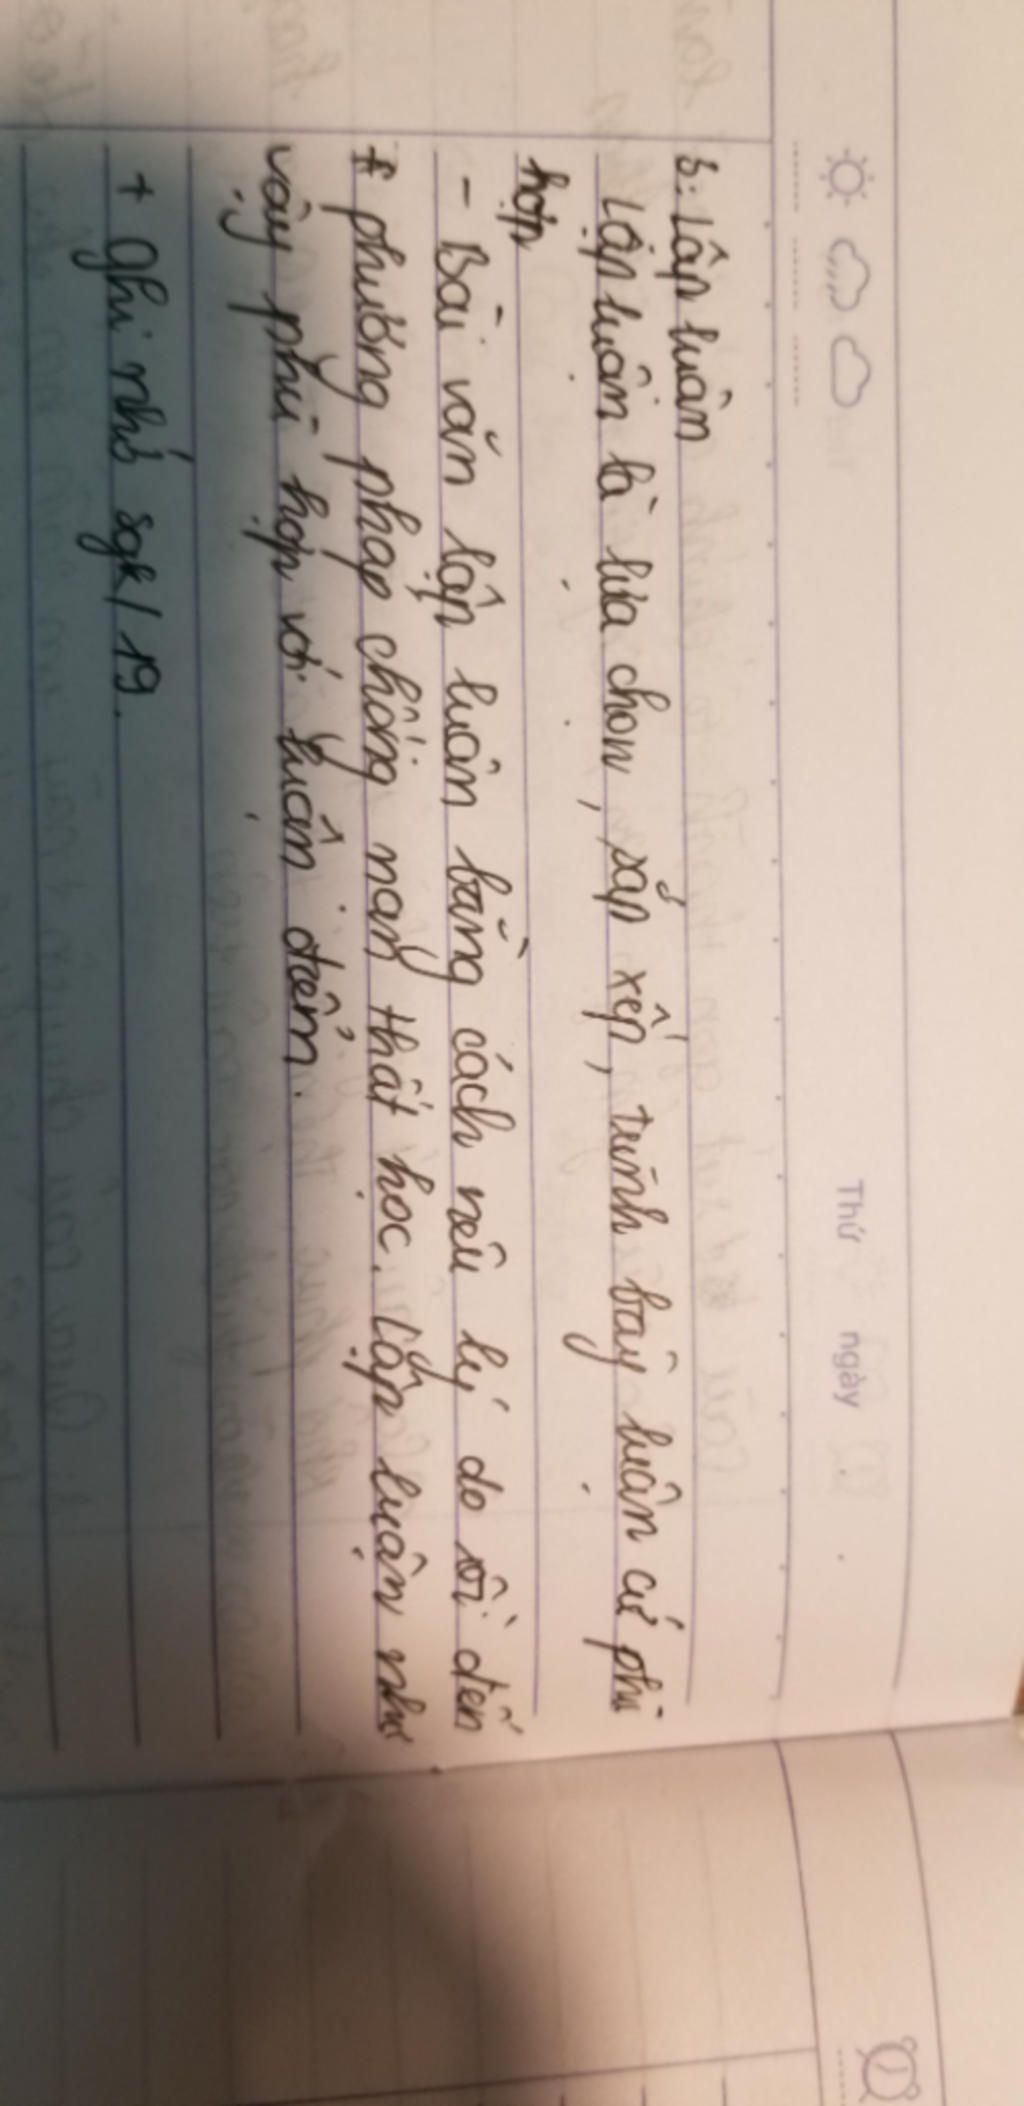 Thứ ngày
b: Lập luận
Lập luận là lựa chọn, sắp xếp, trình bày luận cứ phù
hợp
- Bài văn lập luận bằng cách nêu lý do rồi đến
* phương pháp chống nạn thất học. Lập luận như
vậy phù hợp với luận điểm.
+ Ghi nhớ sgk/19.